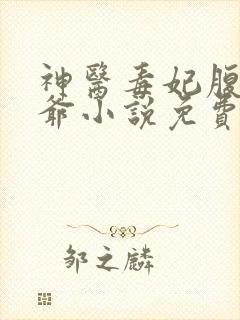 神醫毒妃腹
爺小說免費
邹之麟